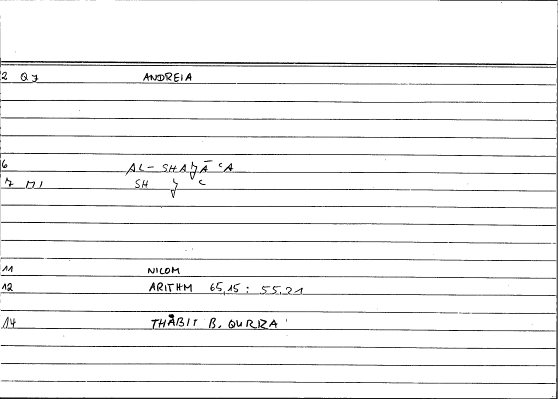 2 QJ ANDREIA
6 AL-SHAǦĀ ᶜA
7 DJ SH Ǧ C
11 NICOM
12 ARITHM 65,15 : 55.21
14 THĀBIT B. QURRA